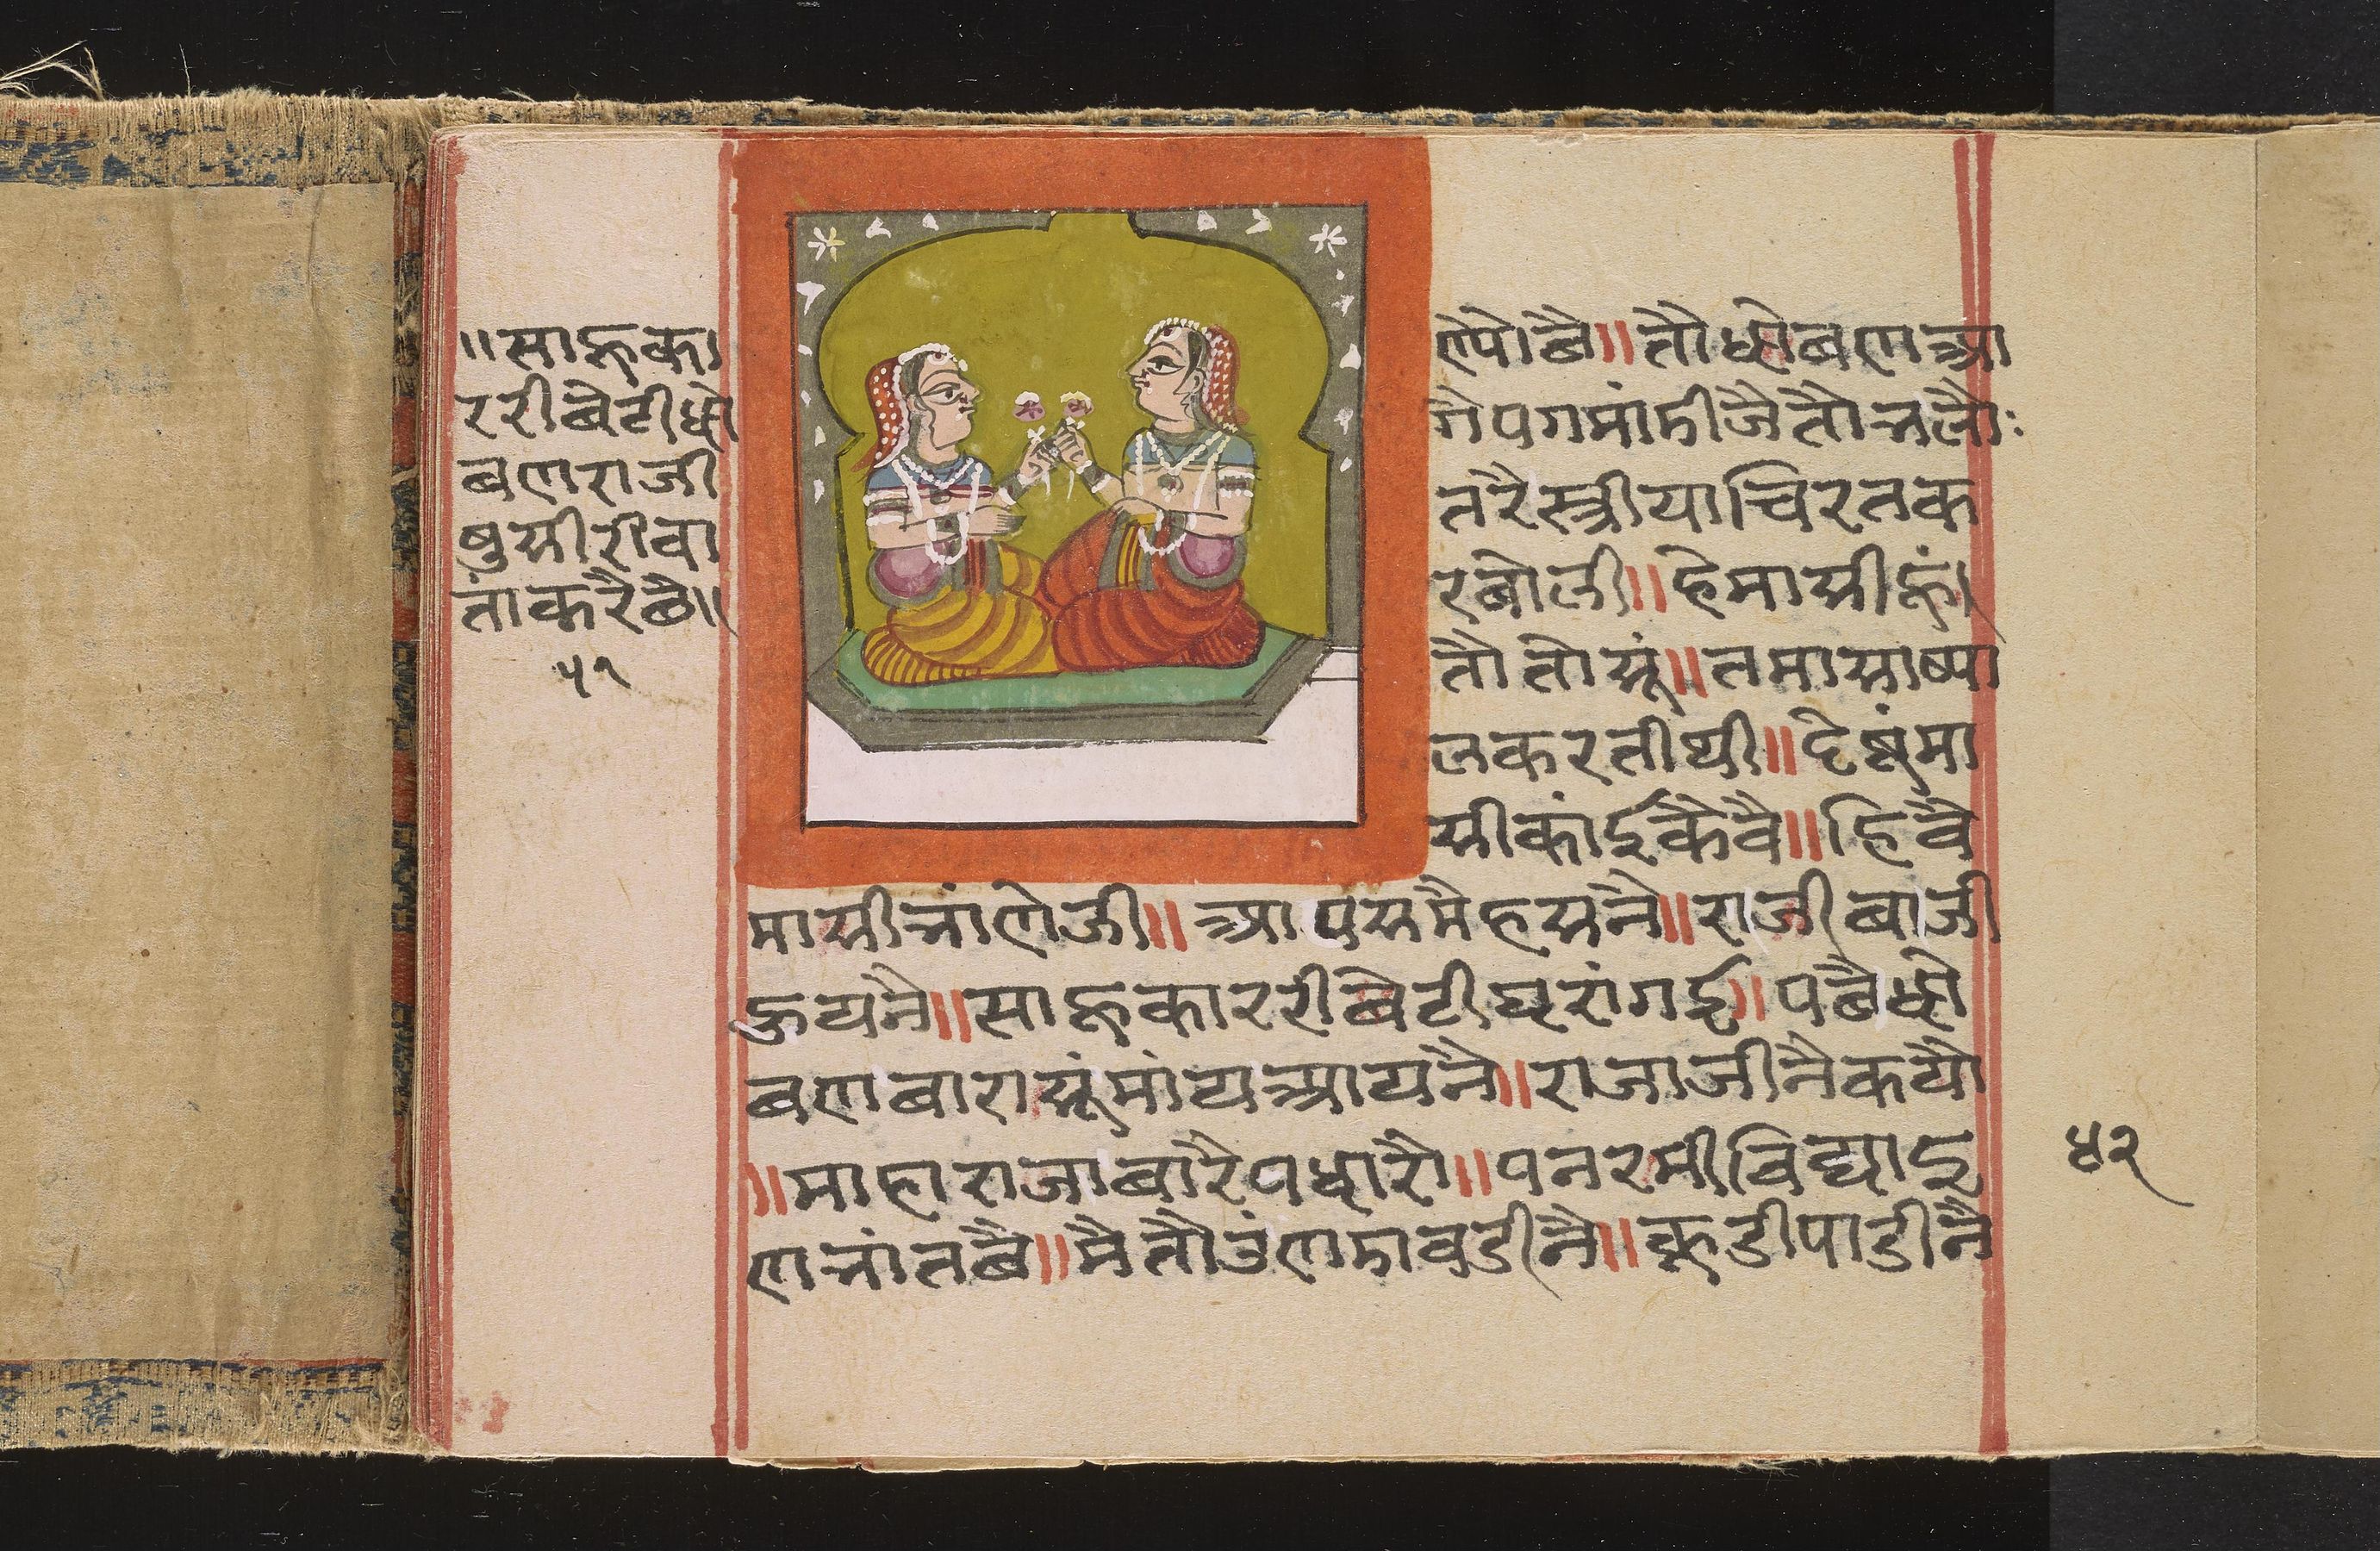 ॥साहूका
ररी बैटी धो
बण राजी
षुसी री वा
तां करै छै॥
५१
णे पो छै॥ तौ धोबण आ
गै पग मांडीजै तौ न्नलौ:
तरै स्त्रीया चिरत क
र बोली॥ हे मासी हूं
तौ तो सूं॥ तमासा ष्या
ल करती थी॥ देषं मा
सी कांई कैवै॥ हिवै
मासी न्नांणेजी॥ आपस मै हसनै॥ राजी बाजी
हुयनै॥ साहूकार री बैटी घरां गई॥ पछै धो
बण बारा सूं मांय आयनै॥ राजाजी नै कयौ
॥माहाराजा बारै पधारौ॥ पनरमी विद्या इ
ण न्नांत छै॥ मै तौ उंण माव डी नै॥ कूडी पाडी नै
५२